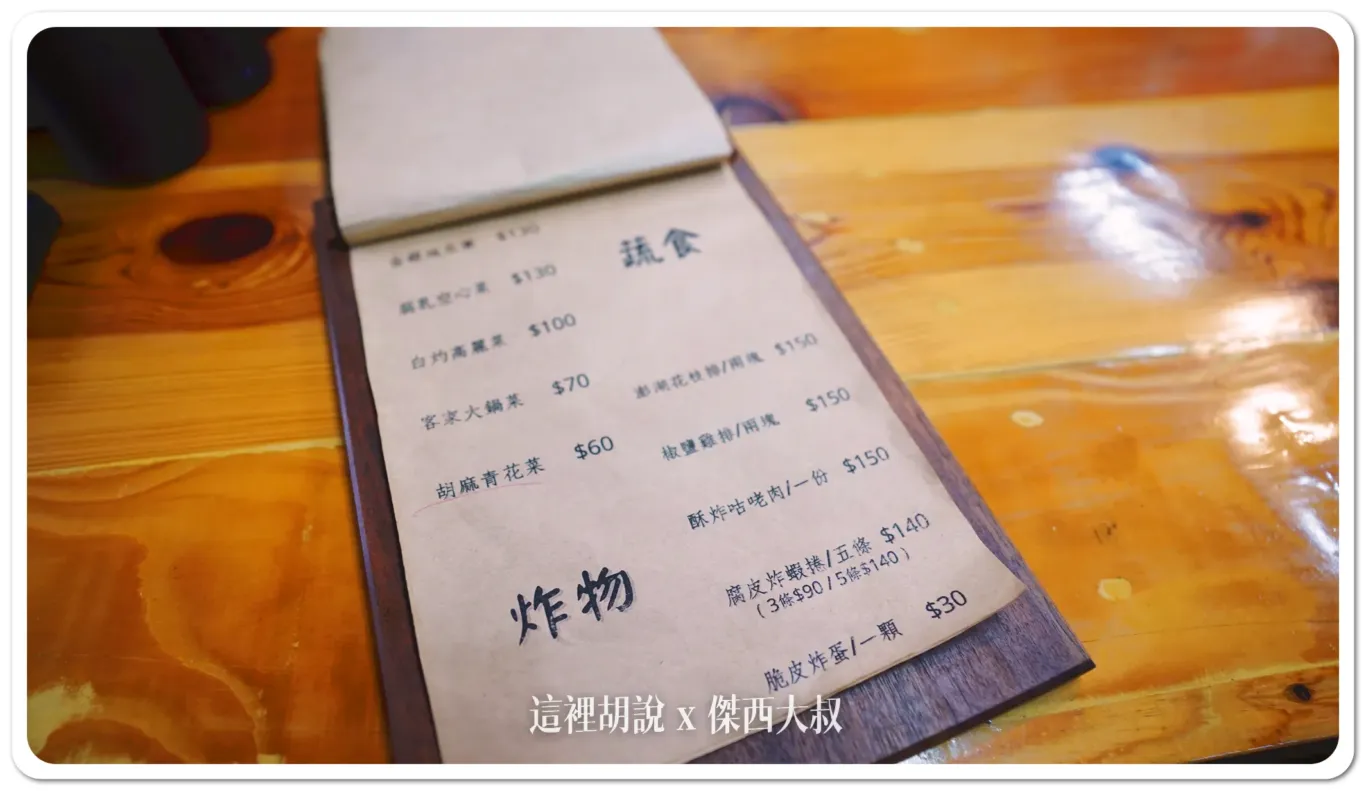 蔬食
$130
腐乳空心菜 $130
白灼高麗菜 $100
客家大鍋菜 $70
胡麻青花菜 $60
炸物
澎湖花枝排/兩塊 $150
椒鹽雞排/兩塊 $150
酥炸咕咾肉/一份 $150
腐皮炸蝦捲/五條 $140
(3條$90/5條$140)
脆皮炸蛋/一顆 $30
這裡胡說 x 傑西大叔